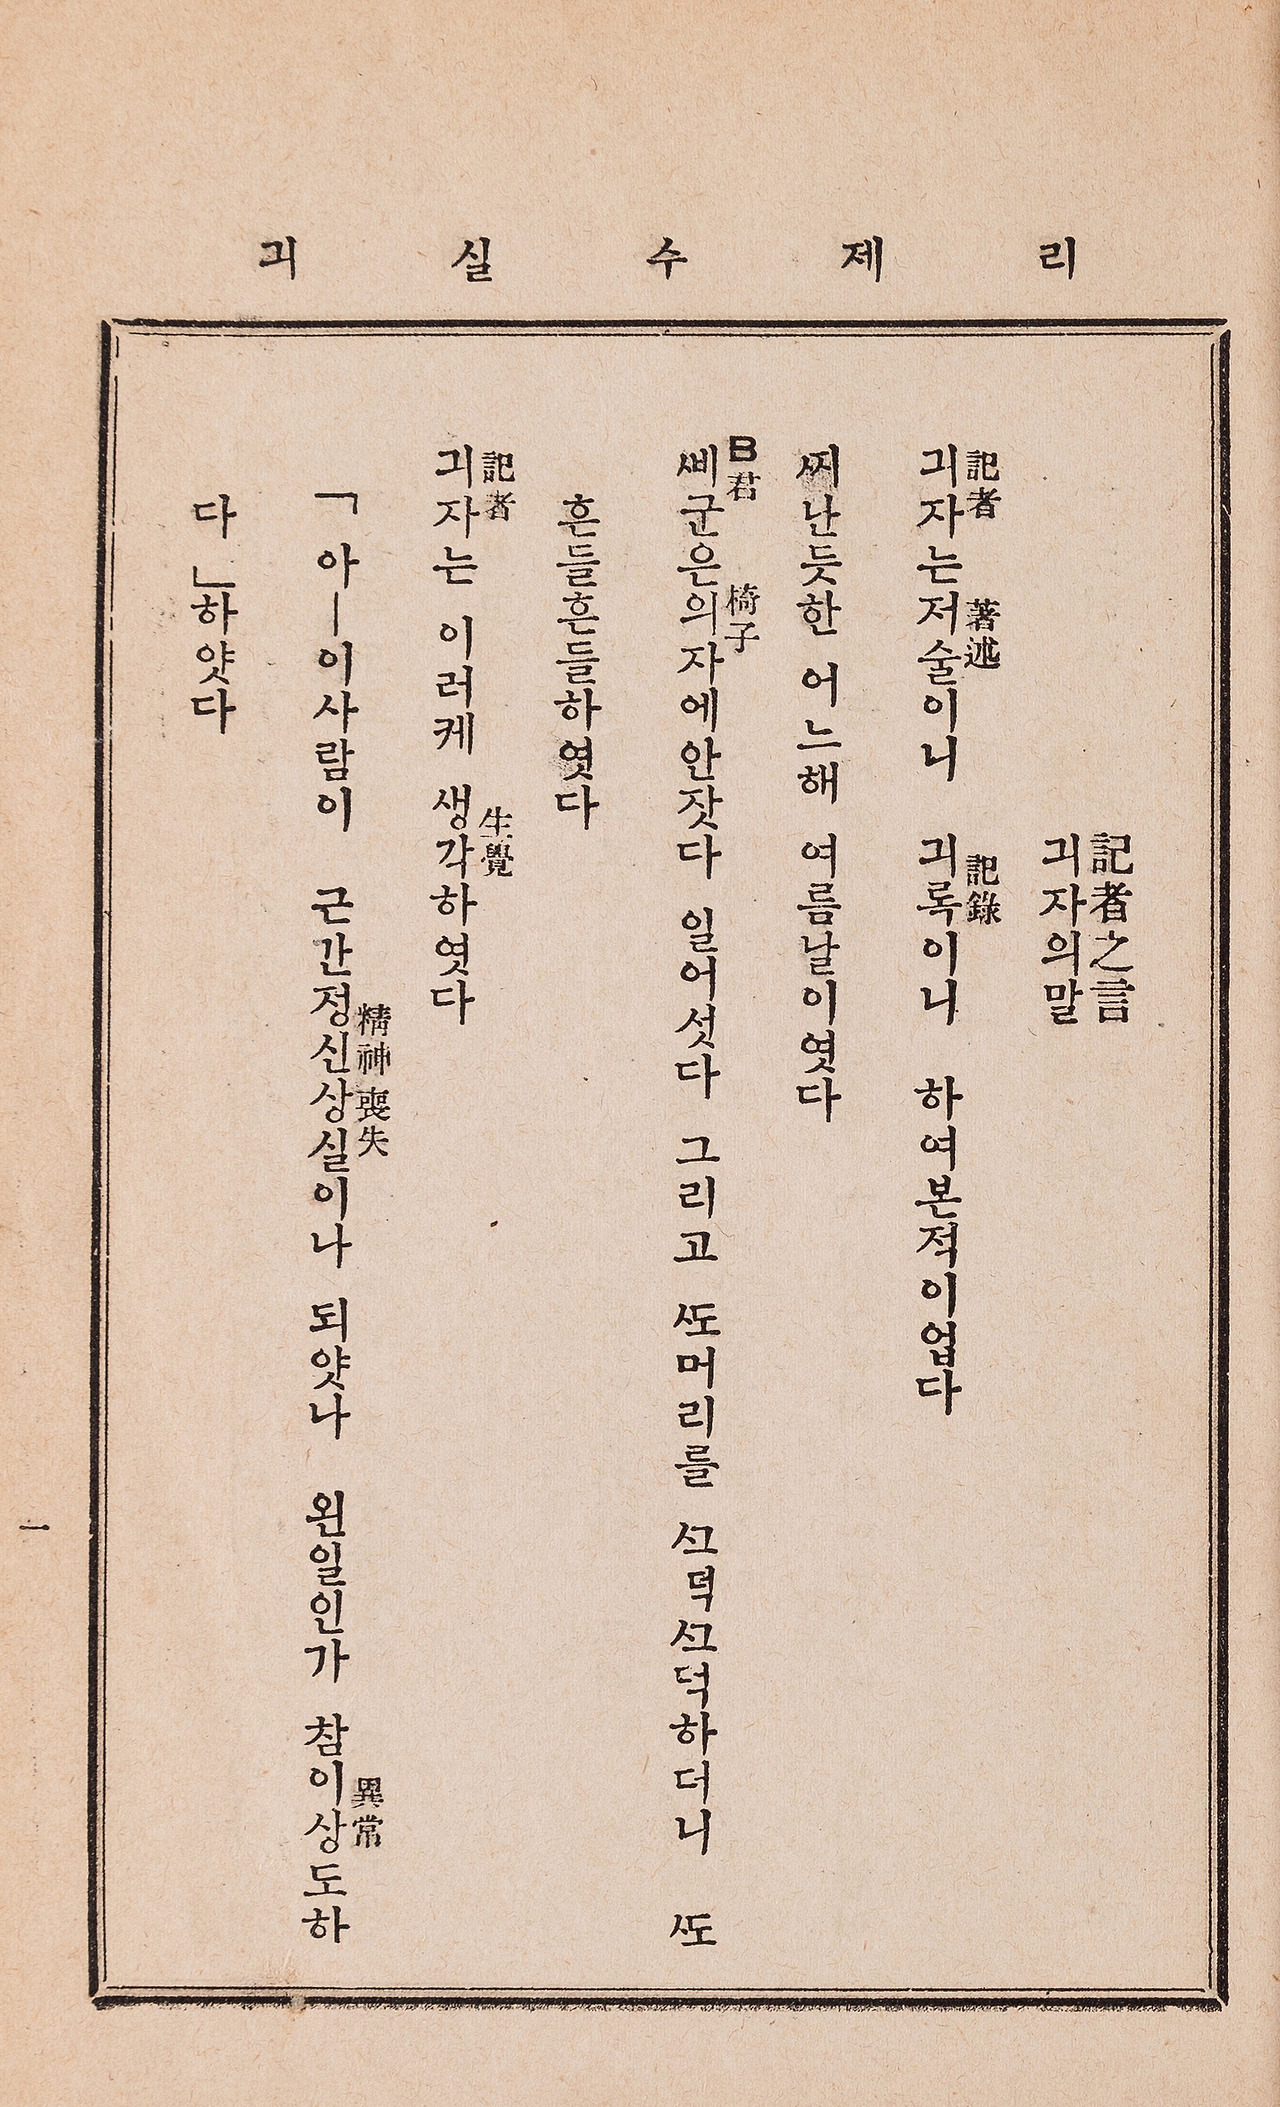 리제수실긔
記者之言
긔자의말
記者 著述 記錄
긔자는저술이니 긔록이니 하여본적이업다
ᄶᅵ난듯한 어느해 여름날이엿다
B君 椅子
ᄲᅵ군은의자에안잣다 일어섯다 그리고 ᄯᅩ머리를 ᄭᅩ덕ᄭᅩ덕하더니 ᄯᅩ
흔들흔들하엿다
記者 生覺
긔자는 이러케 생각하엿다
精神喪失 異常
「아―이사람이 근간정신상실이나 되얏나 왼일인가 참이상도하
다」하얏다
一